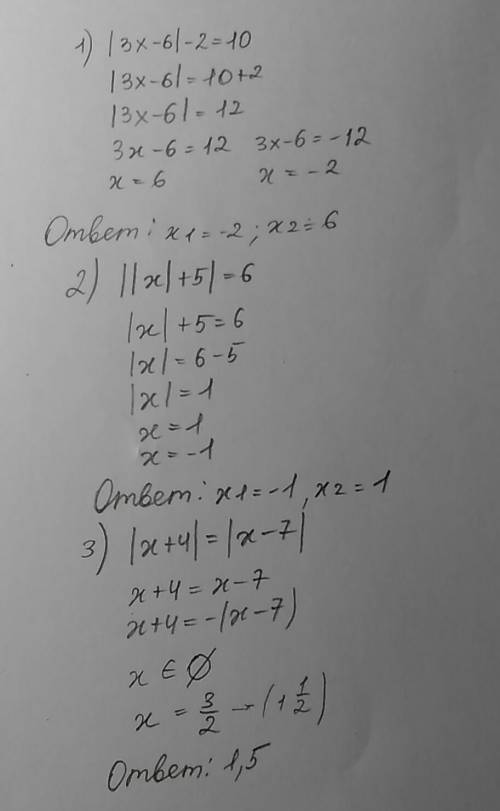 1) |3x-6|-2=10
|3x-6|=10+2
|3x-6|=12
3x-6=12 3x-6=-12
x=6 x=-2
Ответ: x1=-2; x2=6
2) ||x|+5|=6
|x|+5=6
|x|=6-5
|x|=1
x=1
x=-1
Ответ: x1=-1, x2=1
3) |x+4|=|x-7|
x+4=x-7
x+4=-(x-7)
x∈∅
x=3/2→(1 1/2)
Ответ: 1,5